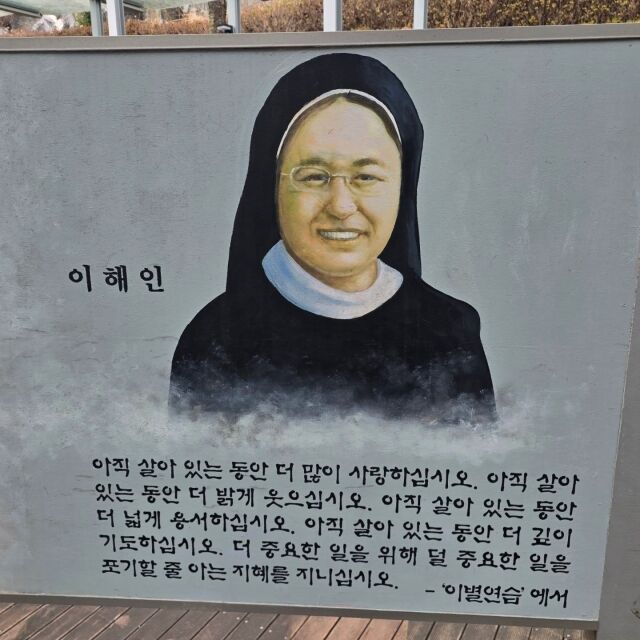 이해인
아직 살아 있는 동안 더 많이 사랑하십시오. 아직 살아
있는 동안 더 밝게 웃으십시오. 아직 살아 있는 동안
더 넓게 용서하십시오. 아직 살아 있는 동안 더 깊이
기도하십시오. 더 중요한 일을 위해 덜 중요한 일을
포기할 줄 아는 지혜를 지니십시오. - '이별연습' 에서